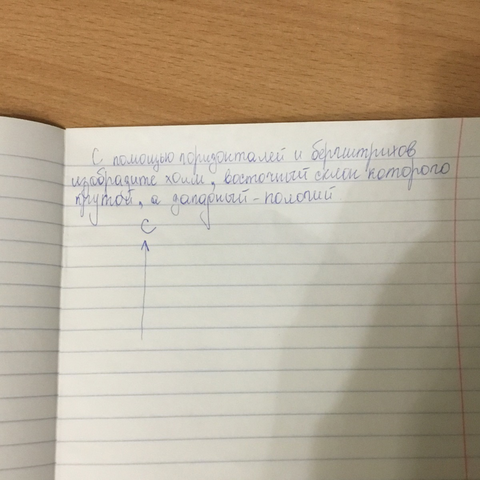 С помощью горизонталей и бергштрихов
изобразите холм, восточный склон которого
крутой, а западный - пологий
С